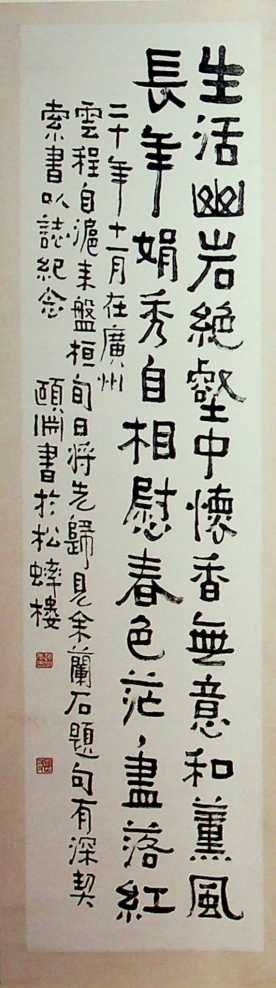 生活幽岩絶壑中懷香無意和薰風
長年娟秀自相慰春色茫〻盡落紅
二十年十一月在廣州
雲程自滬来盤桓旬日将先歸見余蘭石題句有深契
索書以誌紀念 頤淵書於松蟀樓